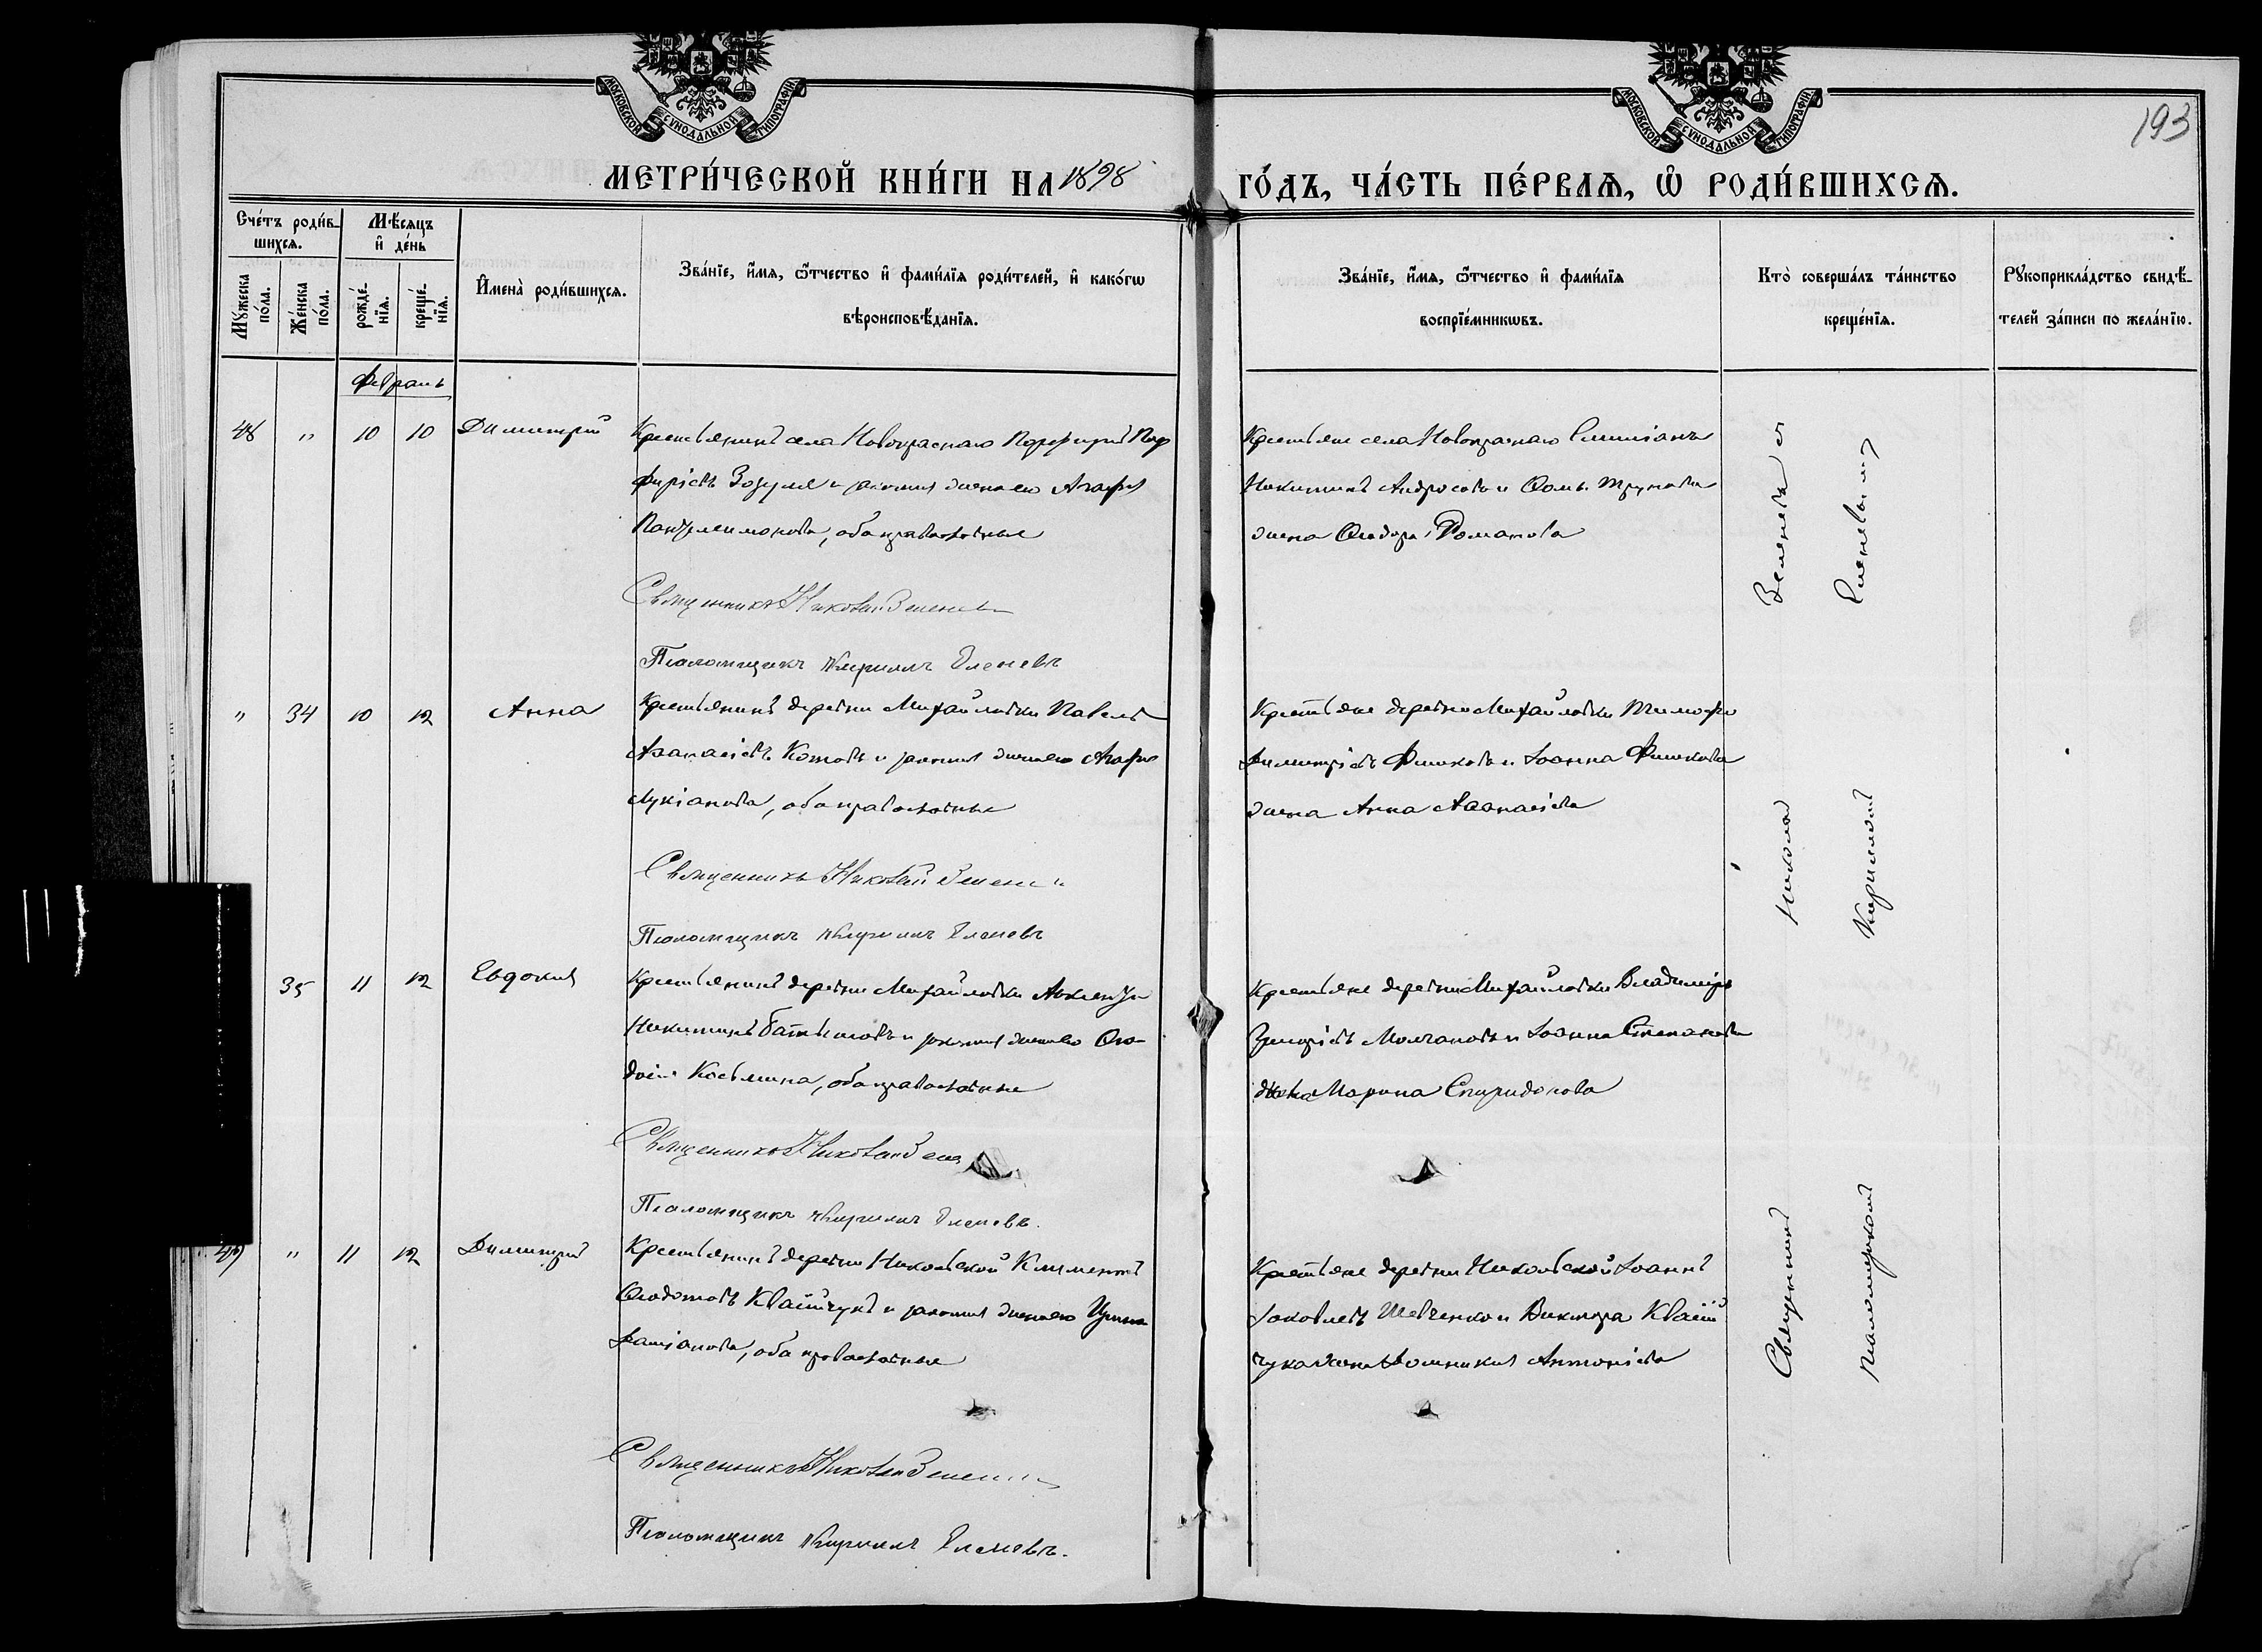 МОСКОВСКОЙ СѴНОДАЛЬНОЙ ТИПОГРАФІИ
МОСКОВСКОЙ СѴНОДАЛЬНОЙ ТИПОГРАФІИ
193
МЕТРИ́ЧЕСКОЙ КНИ́ГИ НА 1898 ГО́ДЪ, ЧА́СТЬ ПЕ́РВАЯ, Ѽ РОДИ́ВШИХСЯ.
Сче́тъ роди́в-
шихся.
Мѣ́сяцъ
и҆ де́нь
Му́жеска по́ла.
Же́нска по́ла.
рожде́нїя.
креще́нїя.
И҆мена̀ роди́вшихся.
Зва́нїе, и҆́мя, ѻ҆́тчество и҆ фами́лїя роди́телей, и҆ како́гѡ
вѣроисповѣ́данїя.
Зва́нїе, и҆́мя, ѻ҆́тчество и҆ фами́лїя
воспрїе́мникѡвъ.
Кто̀ соверша́лъ та́инство
креще́нїя.
Рꙋкоприкла́дство свидѣ́-
телей за́писи по жела́нїю.
Февраль
48 " 10 10 Димитрій
Крестьянинъ села Новокраснаго Порфирій Пор
фиріевъ Зозуля и законная жена его Агафія
Пантелеимонова, оба православные
Священникъ Николай
Псаломщикъ Кириллъ Еленевъ
Крестьяне села Новокраснаго Емиліанъ
Никитинъ Андросовъ и Ѳомы
жена Ѳеодора Романова
" 34 10 12 Анна
Крестьянинъ деревни Михайловки Павелъ
Аѳанасіевъ Котовъ и законная жена его Агафія
Лукіанова, оба православные
Священникъ Николай
Псаломщикъ Кириллъ Еленевъ
Крестьяне деревни Михайловки Тимофей
Димитріевъ Фишковъ и Іоанна Фишкова
жена Анна Аѳанасіева
35 11 12 Евдокія
Крестьянинъ деревни Михайловки Авксентій
Никитинъ и законная жена его Ѳео-
досія Косьмина, оба православные
Священникъ Николай
Псаломщикъ Кириллъ Еленевъ.
Крестьяне деревни Михайловки Владиміръ
Григоріевъ Молчановъ и Іоанна Степанова
жена Марина Спиридонова
49 " 11 12 Димитрій
Крестьянинъ деревни Никольской Климентъ
Ѳеодотовъ Квайчукъ и законная жена его Ирина
Даміанова, оба православные
Священникъ Николай
Псаломщикъ Кириллъ Еленевъ.
Крестьяне деревни Никольской Іоаннъ
Іаковлевъ Шевченко и Виктора Квай
чука жена Домникія Антоніева
Священникъ Николай
псаломщикомъ Кирилломъ Еленевымъ